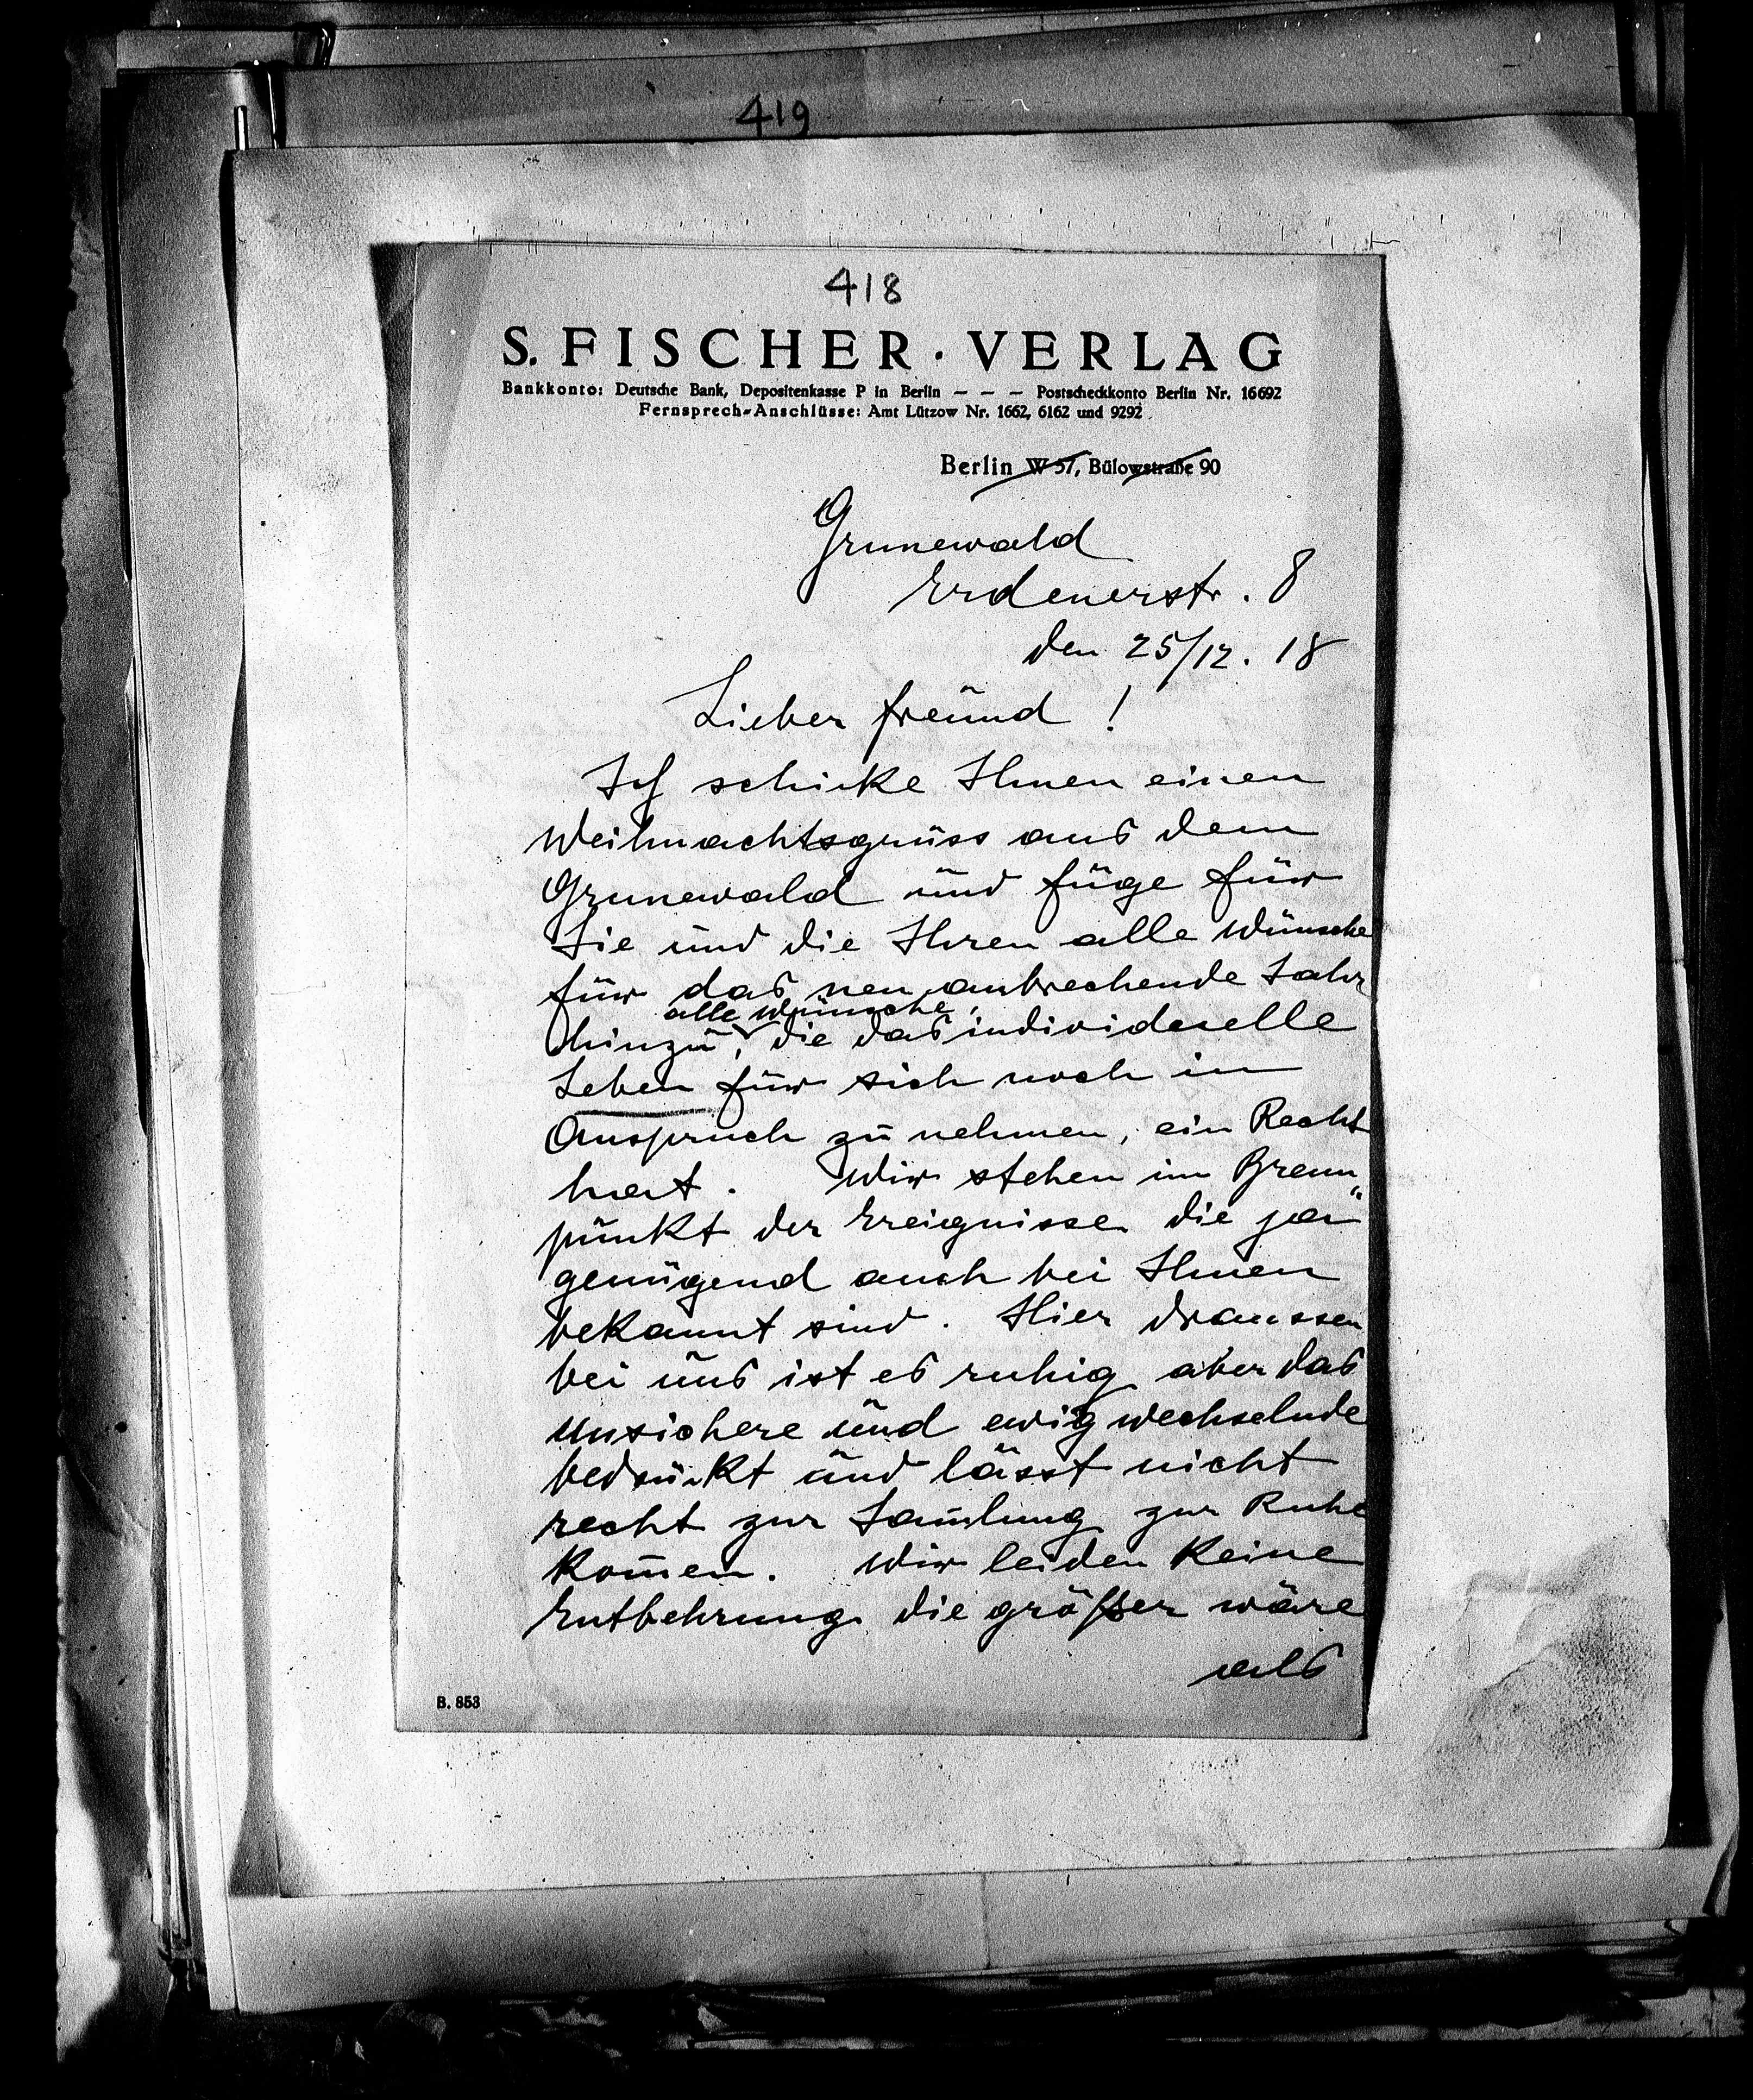 419
418
S. FISCHER · VERLAG
Bankkonto: Deutsche Bank, Depositenkasse P in Berlin — — — Postscheckkonto Berlin Nr. 16692
Fernsprech-Anschlüsse: Amt Lützow Nr. 1662, 6162 und 9292
Berlin W 57, Bülowstraße 90
Grunewald
Erdenerstr. 8
den 25/12. 18
Lieber Freund!
Ich schicke Ihnen einen
Weihnachtsgruss aus dem
Grunewald und füge für
Sie und die Ihren alle Wünsche
für das neu anbrechende Jahr
alle Wünsche,
hinzu, die das individuelle
Leben für sich noch in
Anspruch zu nehmen, ein Recht
hat. Wir stehen im Brenn"
punkt der Ereignisse die ja
genügend auch bei Ihnen
bekannt sind. Hier draussen
bei uns ist es ruhig aber das
Unsichere und ewig wechselnde
bedrückt und lässt nicht
recht zur Sam̄lung zur Ruhe
kom̄en. Wir leiden keine
Entbehrung die größer wäre
als
B. 853